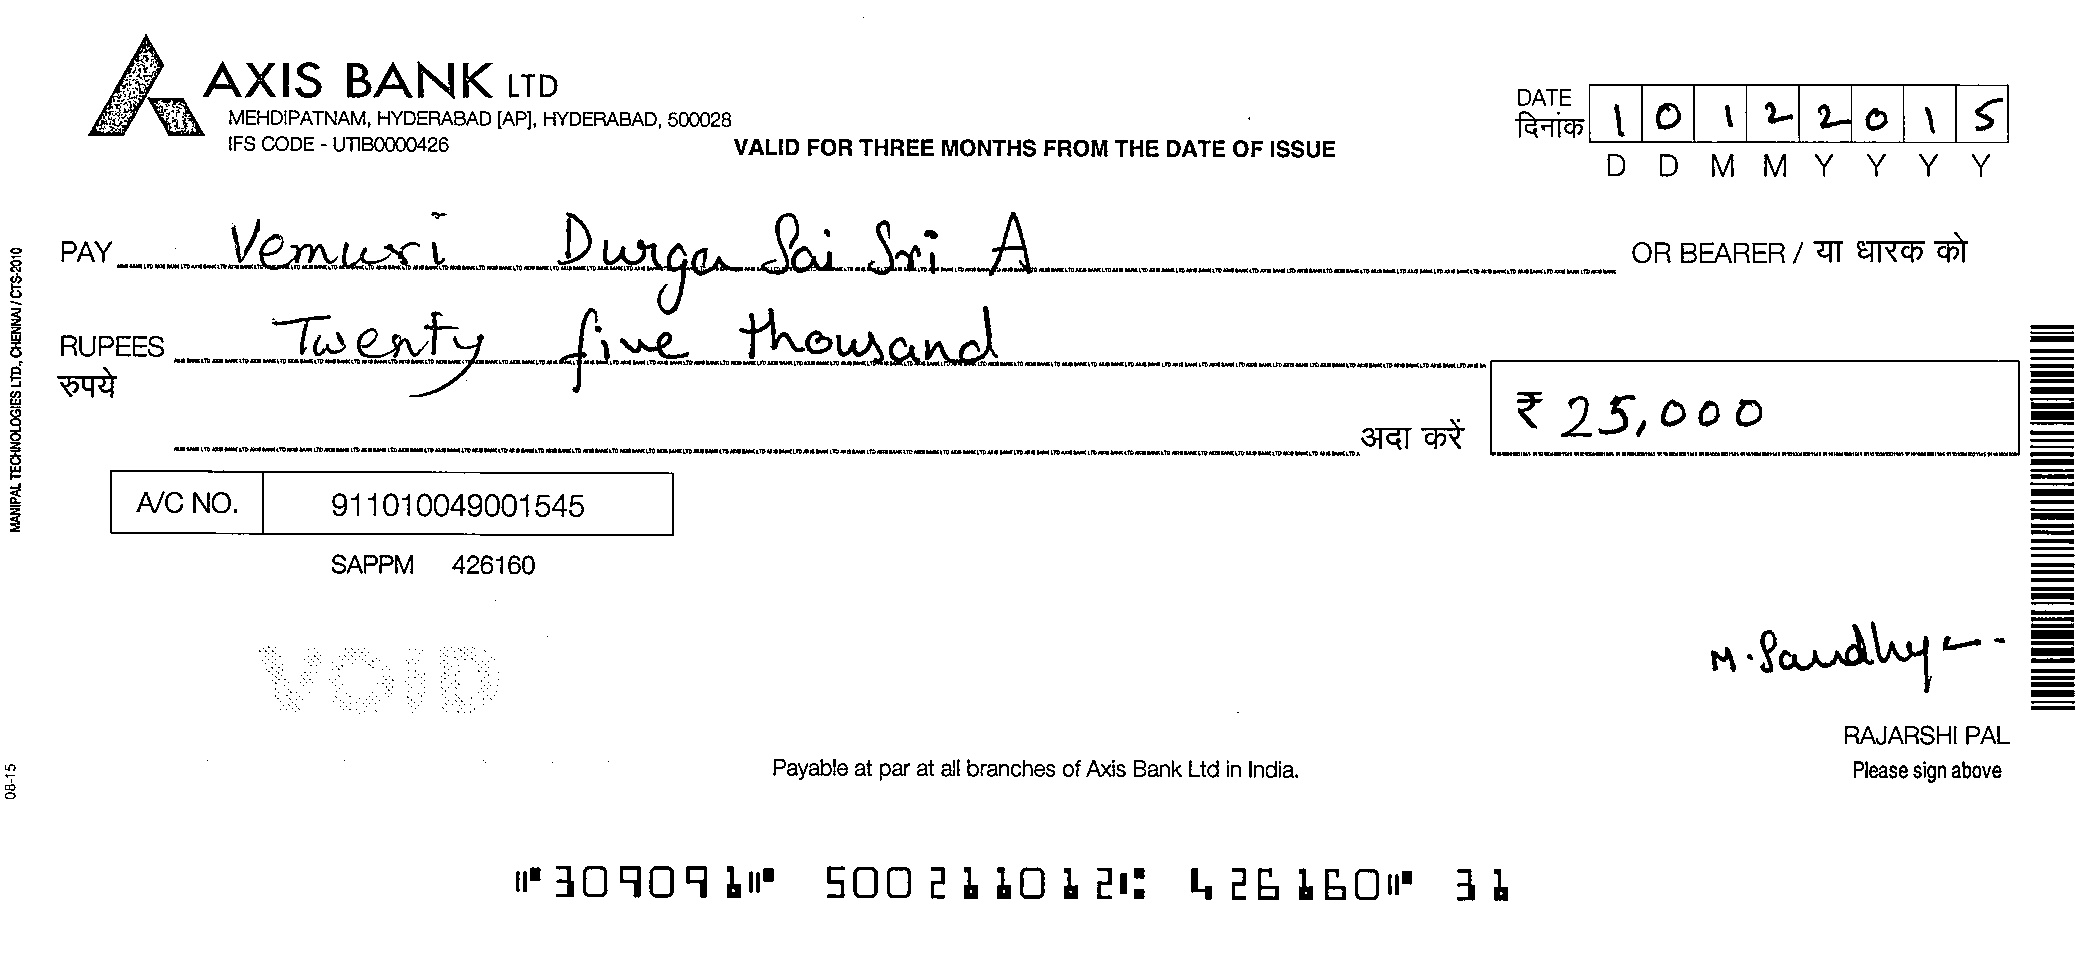 AXIS BANK LTD
MEHDIPATNAM, HYDERABAD [AP], HYDERABAD, 500028
IFS CODE - UTIB0000426
VALID FOR THREE MONTHS FROM THE DATE OF ISSUE
DATE
दिनांक
1 0 1 2 2 0 1 5
D D M M Y Y Y Y
PAY Vemuri Durga Sai Sri A OR BEARER / या धारक को
RUPEES Twenty five thousand
रुपये
अदा करें ₹ 25,000
A/C NO. 911010049001545
SAPPM 426160
VOID
M. Sandhya
RAJARSHI PAL
Please sign above
Payable at par at all branches of Axis Bank Ltd in India.
MANIPAL TECHNOLOGIES LTD., CHENNAI / CTS-2010
08-15
⑈309091⑈ 500211012⑆ 426160⑈ 31